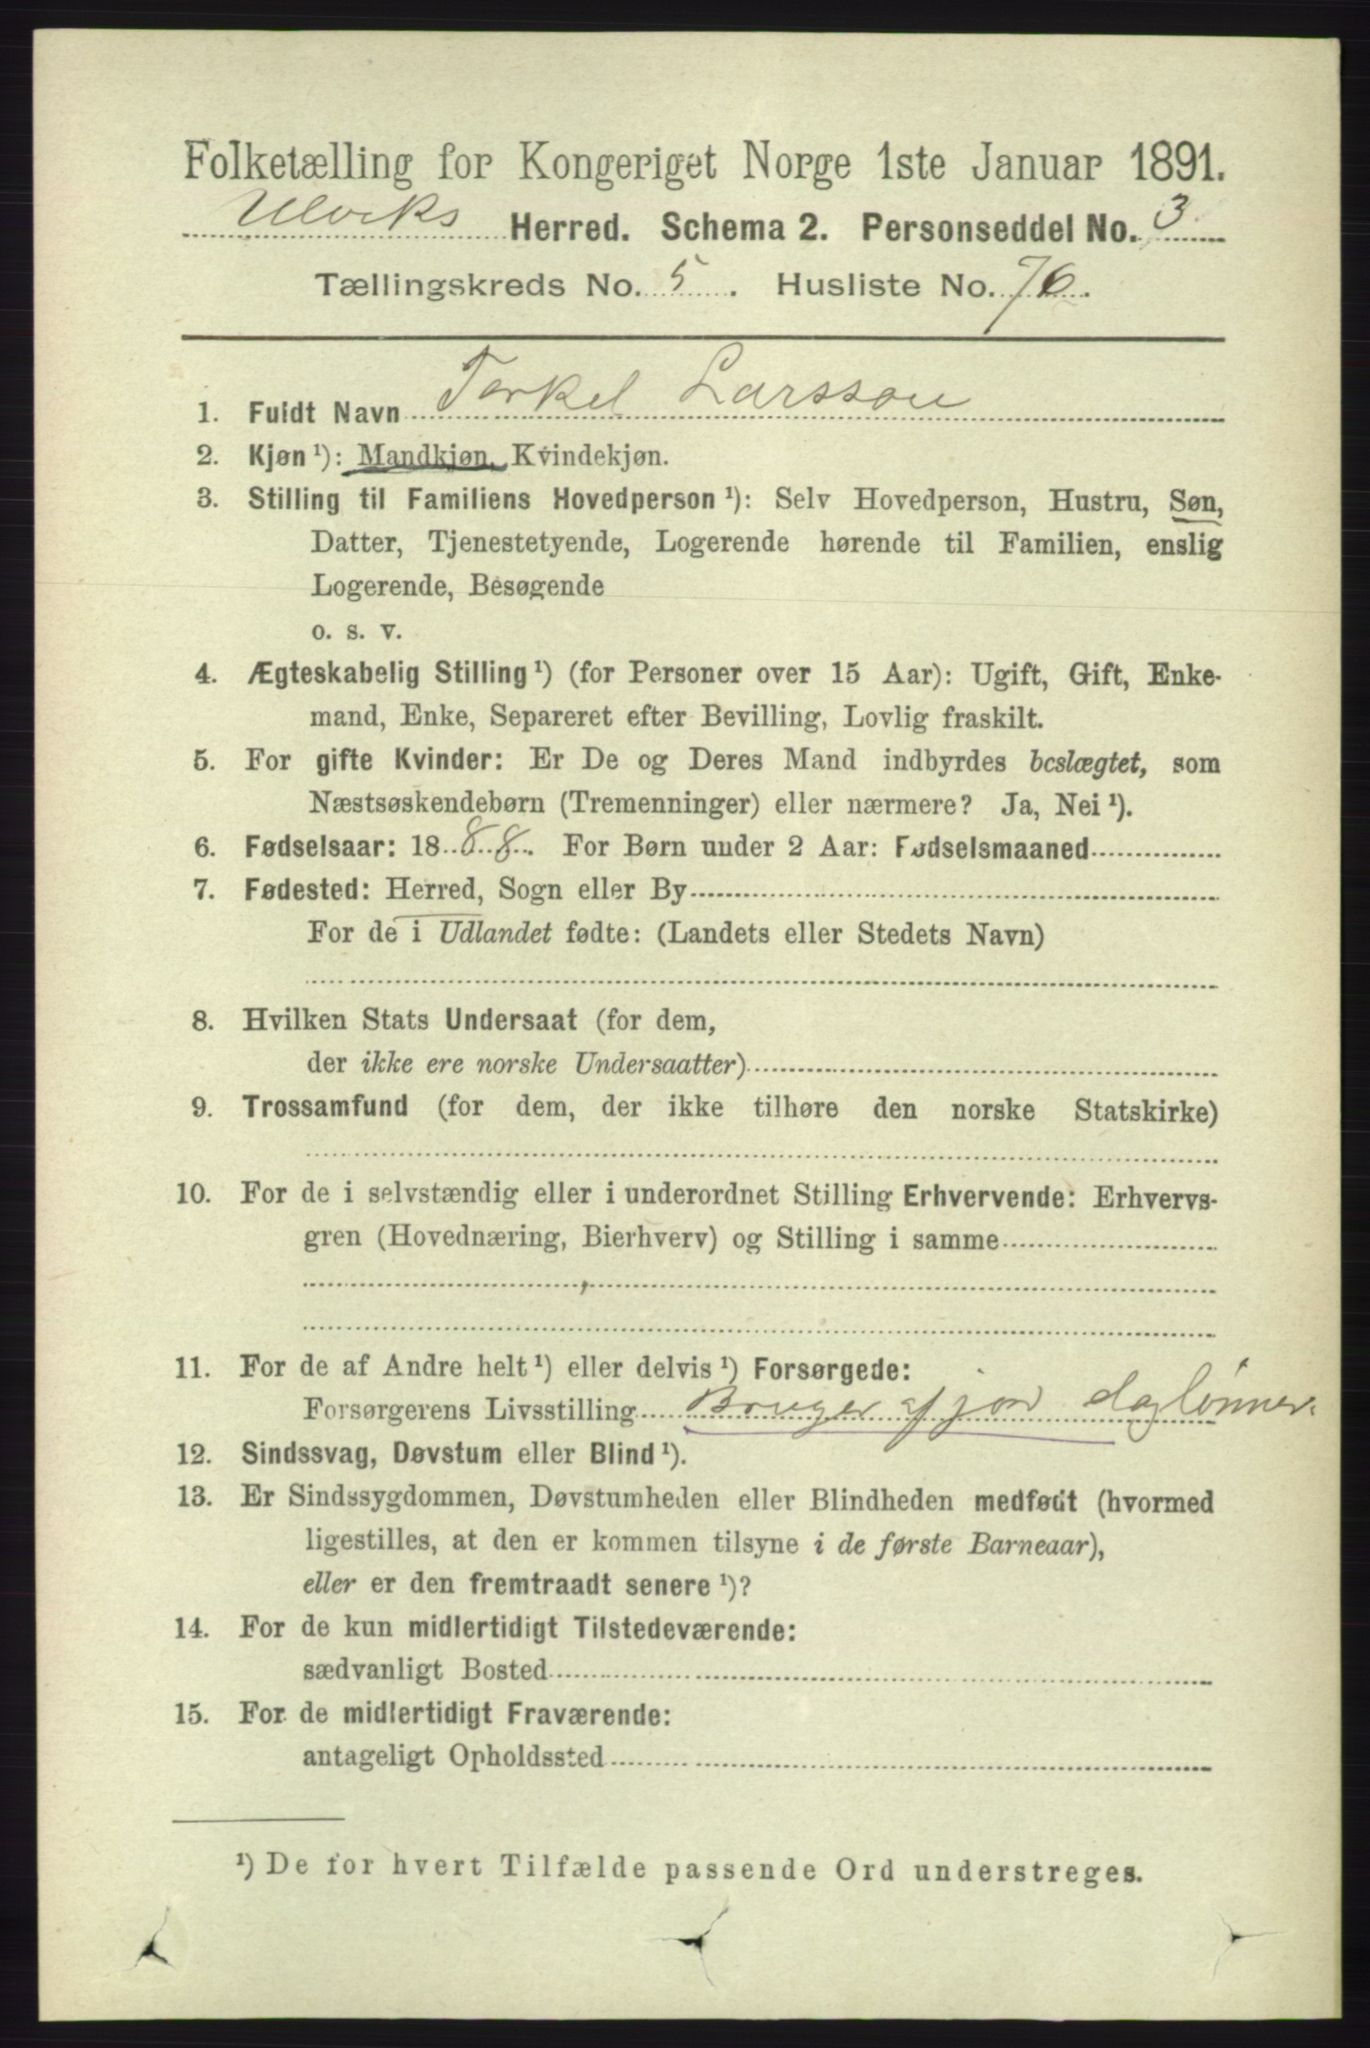 Folketælling for Kongeriget Norge 1ste Januar 1891.
Ulviks Herred. Schema 2. Personseddel No. 3
Tællingskreds No. 5. Husliste No. 76.
1. Fuldt Navn Torkel Larsson
2. Kjøn ¹): Mandkjøn, Kvindekjøn.
3. Stilling til Familiens Hovedperson ¹): Selv Hovedperson, Hustru, Søn,
Datter, Tjenestetyende, Logerende hørende til Familien, enslig
Logerende, Besøgende
o. s. v.
4. Ægteskabelig Stilling ¹) (for Personer over 15 Aar): Ugift, Gift, Enke-
mand, Enke, Separeret efter Bevilling, Lovlig fraskilt.
5. For gifte Kvinder: Er De og Deres Mand indbyrdes beslægtet, som
Næstsøskendebørn (Tremenninger) eller nærmere? Ja, Nei ¹).
6. Fødselsaar: 1888. For Børn under 2 Aar: Fødselsmaaned
7. Fødested: Herred, Sogn eller By
For de i Udlandet fødte: (Landets eller Stedets Navn)
8. Hvilken Stats Undersaat (for dem,
der ikke ere norske Undersaatter)
9. Trossamfund (for dem, der ikke tilhøre den norske Statskirke)
10. For de i selvstændig eller i underordnet Stilling Erhvervende: Erhvervs-
gren (Hovednæring, Bierhverv) og Stilling i samme
11. For de af Andre helt ¹) eller delvis ¹) Forsørgede:
Forsørgerens Livsstilling Bruger af jord daglönner.
12. Sindssvag, Døvstum eller Blind ¹).
13. Er Sindssygdommen, Døvstumheden eller Blindheden medfødt (hvormed
ligestilles, at den er kommen tilsyne i de første Barneaar),
eller er den fremtraadt senere ¹)?
14. For de kun midlertidigt Tilstedeværende:
sædvanligt Bosted
15. For de midlertidigt Fraværende:
antageligt Opholdssted
¹) De for hvert Tilfælde passende Ord understreges.